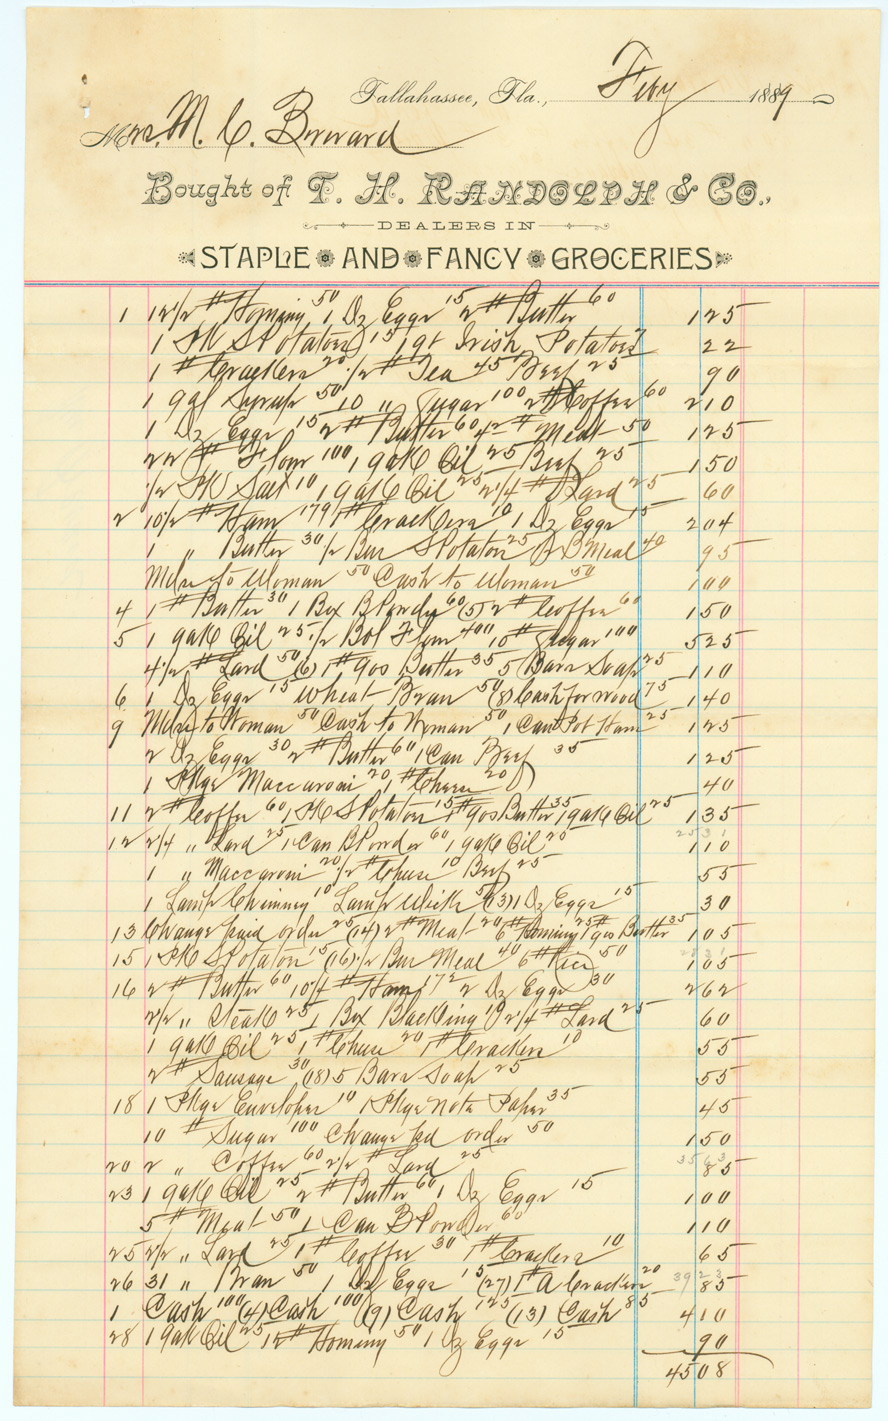 Tallahassee, Fla., Feby 1889
Mrs. M. C. Brevard
Bought of T. H. RANDOLPH & CO.,
DEALERS IN
STAPLE AND FANCY GROCERIES
1 12 1/2 # Hominy 50 1 Dz Eggs 15 2 # Butter 60 1 25
1 PK S Potatoes 15 1 qt Irish Potatoes 7 22
1 # Crackers 20 1/2 # Tea 45 Beef 25 90
1 gal Syrup 50 10 " Sugar 100 2 # Coffee 60 2 10
1 Dz Eggs 15 2 # Butter 60 4 # Meat 50 1 25
22 # Flour 100 1 gak Oil 25 Beef 25 1 50
1/2 PK Salt 10 1 gak Oil 25 2 1/4 # Lard 25 60
2 10 1/2 # Ham 179 1 # Crackers 10 1 Dz Eggs 15 2 04
1 " Butter 30 1/2 Bu S Potatoes 25 Meal 40 95
Mdse to Woman 50 Cash to Woman 50 1 00
4 1 # Butter 30 1 Box B Powder 60 (5) 2 # Coffee 60 1 50
5 1 gak Oil 25 1/2 Bbl Flour 400 10 # Sugar 100 5 25
4 1/2 # Lard 50 (6) 1 # gos Butter 35 5 Bars Soap 25 1 10
6 1 Dz Eggs 15 Wheat Bran 50 (8) Cash for wood 75 1 40
9 Mdse to Woman 50 Cash to Woman 50 1 Can Pot Ham 25 1 25
2 Dz Eggs 30 2 # Butter 60 1 Can Beef 35 1 25
1 Pkge Maccaroni 20 1 # Cheese 20 40
11 2 # Coffee 60 1 PK S Potatoes 15 1 # gos Butter 35 1 gak Oil 25 1 35
25 31
12 2 1/4 " Lard 25 1 Can B Powder 60 1 gak Oil 25 1 10
1 " Maccaroni 20 1/2 # Cheese 10 Beef 25 55
1 Lamp Chimney 10 Lamp Wick 5 (13) 1 Dz Eggs 15 30
13 Change paid order 25 (14) 2 # Meat 20 6 # Hominy 25 1 # gos Butter 35 1 05
15 1 PK S Potatoes 15 (16) 1/2 Bu Meal 40 6 # Rice 50 1 05
16 2 # Butter 60 10 1/4 # Ham 172 2 Dz Eggs 30 2 62
2 1/2 " Steak 25 1 Box Blacking 10 2 1/4 # Lard 25 60
1 gak Oil 25 1 # Cheese 20 1 # Crackers 10 55
2 # Sausage 30 (18) 5 Bars Soap 25 55
18 1 Pkge Envelopes 10 1 Pkge Note Paper 35 45
10 # Sugar 100 Change pd order 50 1 50
35 63
20 2 " Coffee 60 2 1/2 # Lard 25 85
23 1 gak Oil 25 2 # Butter 60 1 Dz Eggs 15 1 00
5 # Meat 50 1 Can B Powder 60 1 10
25 2 1/2 " Lard 25 1 # Coffee 30 1 # Crackers 10 65
39 23
26 31 " Bran 50 1 Dz Eggs 15 (27) 1 # A Crackers 20 85
1 Cash 100 (4) Cash 100 (9) Cash 125 (13) Cash 85 4 10
28 1 gak Oil 25 12 # Hominy 50 1 Dz Eggs 15 90
45 08